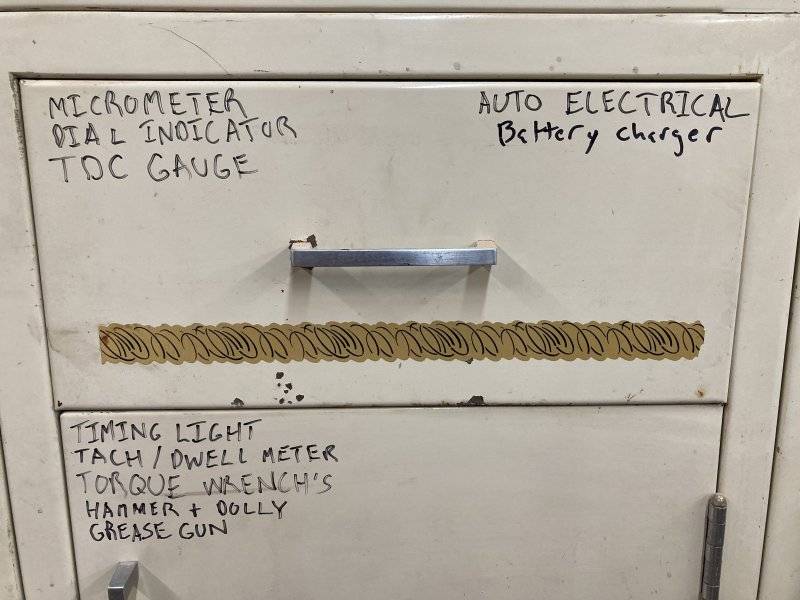 MICROMETER
DIAL INDICATOR
TDC GAUGE
AUTO ELECTRICAL
Battery charger
TIMING LIGHT
TACH / DWELL METER
TORQUE WRENCH'S
HAMMER + DOLLY
GREASE GUN